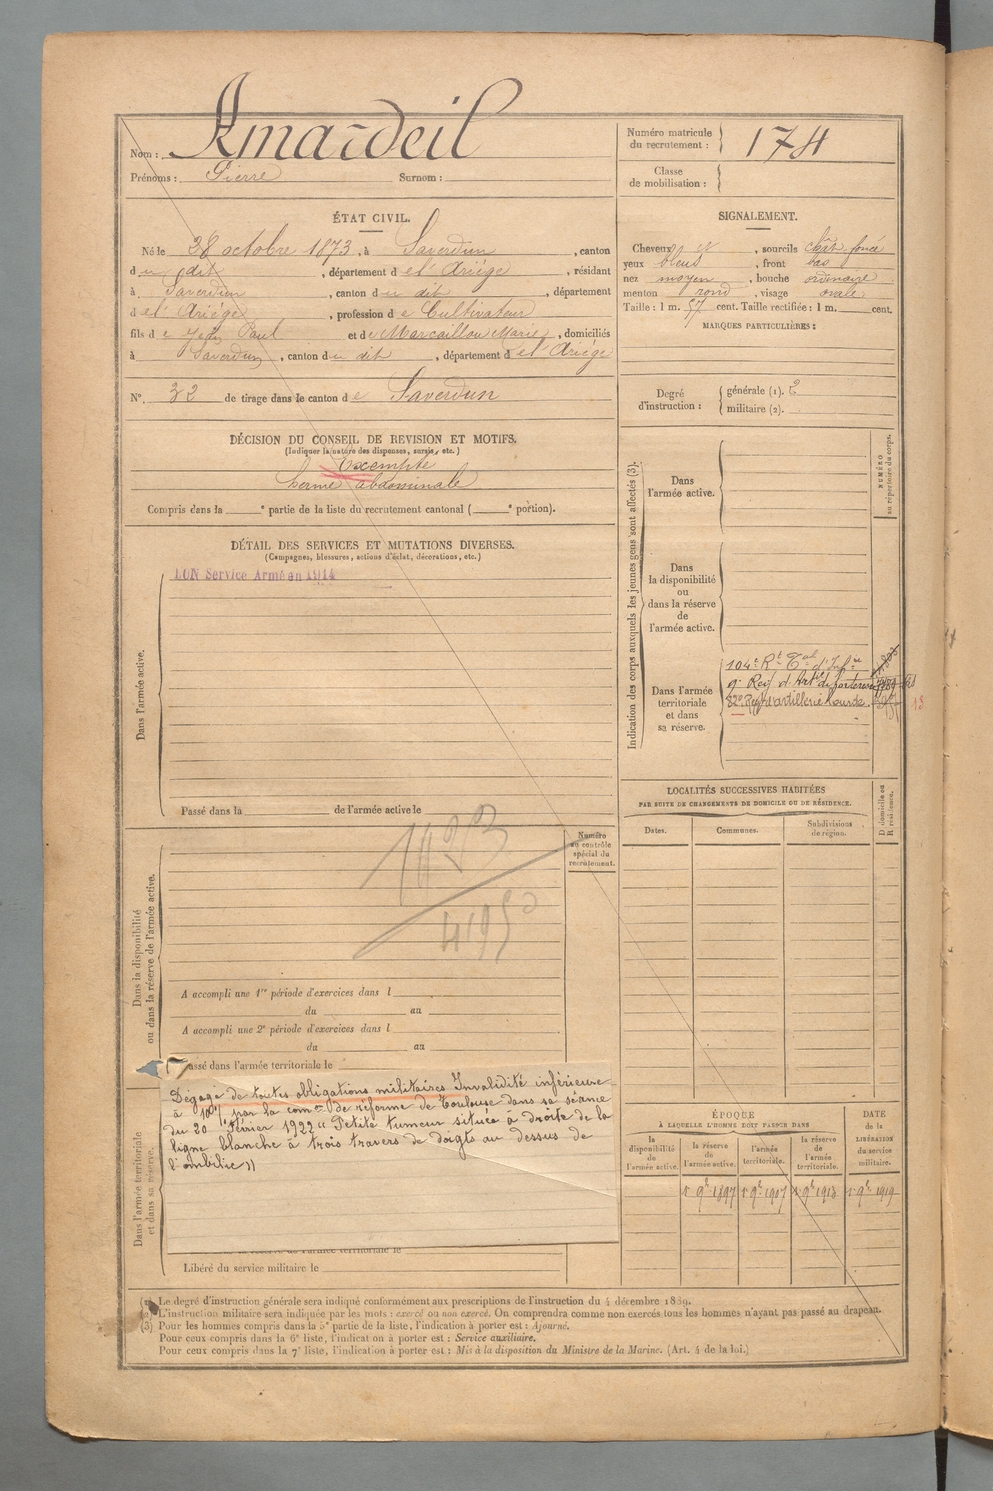 Nom : Amardeil
Prénoms : Pierre Surnom :
Numéro matricule du recrutement : 174
Classe de mobilisation :
ÉTAT CIVIL.
Né le 28 octobre 1873, à Saverdun, canton
du dit, département de l'Ariège, résidant
à Saverdun, canton du dit, département
de l'Ariège, profession de Cultivateur
fils de feu Paul et de Marcaillou Marie, domiciliés
à Saverdun, canton du dit, département de l'Ariège
N° 32 de tirage dans le canton de Saverdun
DÉCISION DU CONSEIL DE REVISION ET MOTIFS.
(Indiquer la nature des dispenses, sursis, etc.)
Exempté
hernie abdominale
Compris dans la e partie de la liste du recrutement cantonal ( e portion).
DÉTAIL DES SERVICES ET MUTATIONS DIVERSES.
(Campagnes, blessures, actions d'éclat, décorations, etc.)
Service Armé en 1914
Dans l'armée active.
Passé dans la de l'armée active le
1423
Numéro au contrôle spécial du recrutement.
Dans la disponibilité
ou dans la réserve de l'armée active.
A accompli une 1re période d'exercices dans l
du au
A accompli une 2e période d'exercices dans l
du au
Passé dans l'armée territoriale le
Dégagé de toutes obligations militaires Invalidité inférieure
à 10% par la comon de réforme de Toulouse dans sa séance
du 20 février 1922 « Petite tumeur située à droite de la
ligne blanche à trois travers de doigts au dessus de
l'ombilic »
Dans l'armée territoriale
et dans sa réserve.
de l'armée territoriale le
Libéré du service militaire le
SIGNALEMENT.
Cheveux et, sourcils chât. foncé
yeux bleus, front bas
nez moyen, bouche ordinaire
menton rond, visage ovale
Taille : 1 m. 57 cent. Taille rectifiée : 1 m. cent.
MARQUES PARTICULIÈRES :
Degré d'instruction :
générale (1). 2
militaire (2).
Indication des corps auxquels les jeunes gens sont affectés (3).
NUMÉRO au répertoire du corps.
Dans
l'armée active.
Dans
la disponibilité
ou
dans la réserve
de
l'armée active.
Dans l'armée
territoriale
et dans
sa réserve.
104e Rt Tal d'Infie
9e Reg d'Artie de forteresse
82e Reg d'artillerie lourde
13
LOCALITÉS SUCCESSIVES HABITÉES
PAR SUITE DE CHANGEMENTS DE DOMICILE OU DE RÉSIDENCE.
Dates. Communes. Subdivisions de région.
D domicile ou R résidence.
ÉPOQUE
À LAQUELLE L'HOMME DOIT PASSER DANS
la disponibilité de l'armée active.
la réserve de l'armée active.
l'armée territoriale.
la réserve de l'armée territoriale.
DATE de la LIBÉRATION du service militaire.
1er 9bre 1897 1er 9bre 1907 1er 9bre 1913 1er 9bre 1919
(1) Le degré d'instruction générale sera indiqué conformément aux prescriptions de l'instruction du 4 décembre 1889.
(2) L'instruction militaire sera indiquée par les mots : exercé ou non exercé. On comprendra comme non exercés tous les hommes n'ayant pas passé au drapeau.
(3) Pour les hommes compris dans la 5e partie de la liste, l'indication à porter est : Ajourné.
Pour ceux compris dans la 6e liste, l'indication à porter est : Service auxiliaire.
Pour ceux compris dans la 7e liste, l'indication à porter est : Mis à la disposition du Ministre de la Marine. (Art. 4 de la loi.)